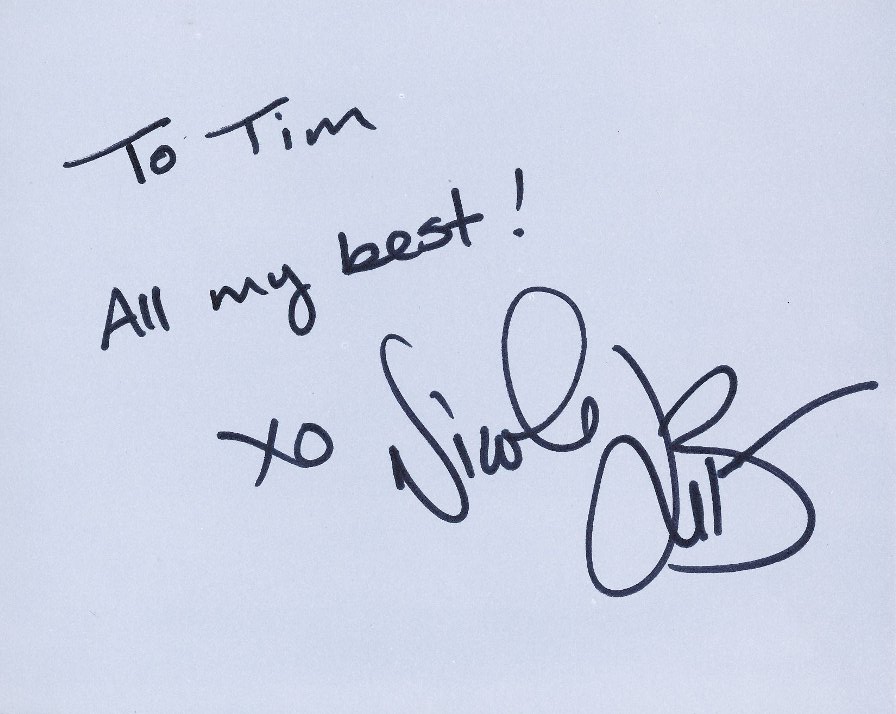 To Tim
All my best!
xo Nicole